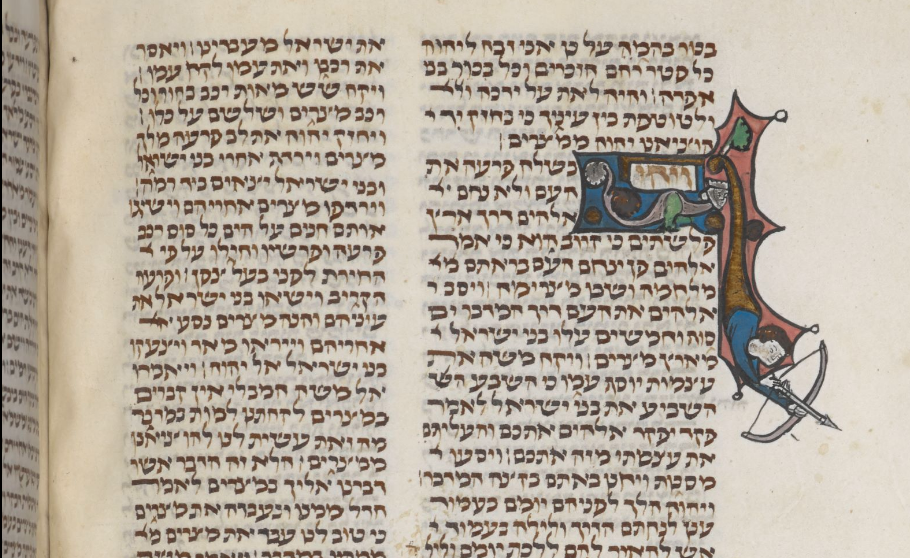 בכור בהמה על כן אני זבח ליהוה
כל פטר רחם הזכרים וכל בכור בני
אפדה והיה לאת על ידכה ול
ולטוטפת בין עיניך כי בחזק יד י
הוציאנו יהוה ממצרים
ויהי
בשלח פרעה את
העם ולא נחם
אלהים דרך ארץ
פלשתים כי קרוב הוא כי אמר
אלהים פן ינחם העם בראתם מל
מלחמה ושבו מצרימה ויסב
אלהים את העם דרך המדבר ים
סוף וחמשים עלו בני ישראל
מארץ מצרים ויקח משה את
עצמות יוסף עמו כי השבע הש
השביע את בני ישראל לאמר
פקד יפקד אלהים אתכם והעליתם
את עצמתי מזה אתכם ויסעו
מסכות ויחנו באתם בקצה המדבר
ויהוה הלך לפניהם יומם בעמוד
ענן לנחתם הדרך ולילה בעמוד
אש להאיר להם ללכת יומם וליל
את ישראל מעבדינו ויאסר
את רכבו ואת עמו לקח עמו
ויקח שש מאות רכב בחור וכל
רכב מצרים ושלשם על כלו
ויחזק יהוה את לב פרעה מלך
מצרים וירדף אחרי בני ישראל
ובני ישראל יצאים ביד רמה
וירדפו מצרים אחריהם וישיגו
אותם חנים על הים כל סוס רכב
פרעה ופרשיו וחילו על פי
החירת לפני בעל צפן ופרעה
הקריב וישאו בני ישראל את
עיניהם והנה מצרים נסע
אחריהם וייראו מאד ויצעקו
בני ישראל אל יהוה ויאמרו
אל משה המבלי אין קברים
במצרים לקחתנו למות במדבר
מה זאת עשית לנו להוציאנו
ממצרים הלא זה הדבר אשר
דברנו אליך במצרים לאמר
חדל ממנו ונעבדה את מצרים
כי טוב לנו עבד את מצרים מ
ממתנו במדבר ויאמר משה